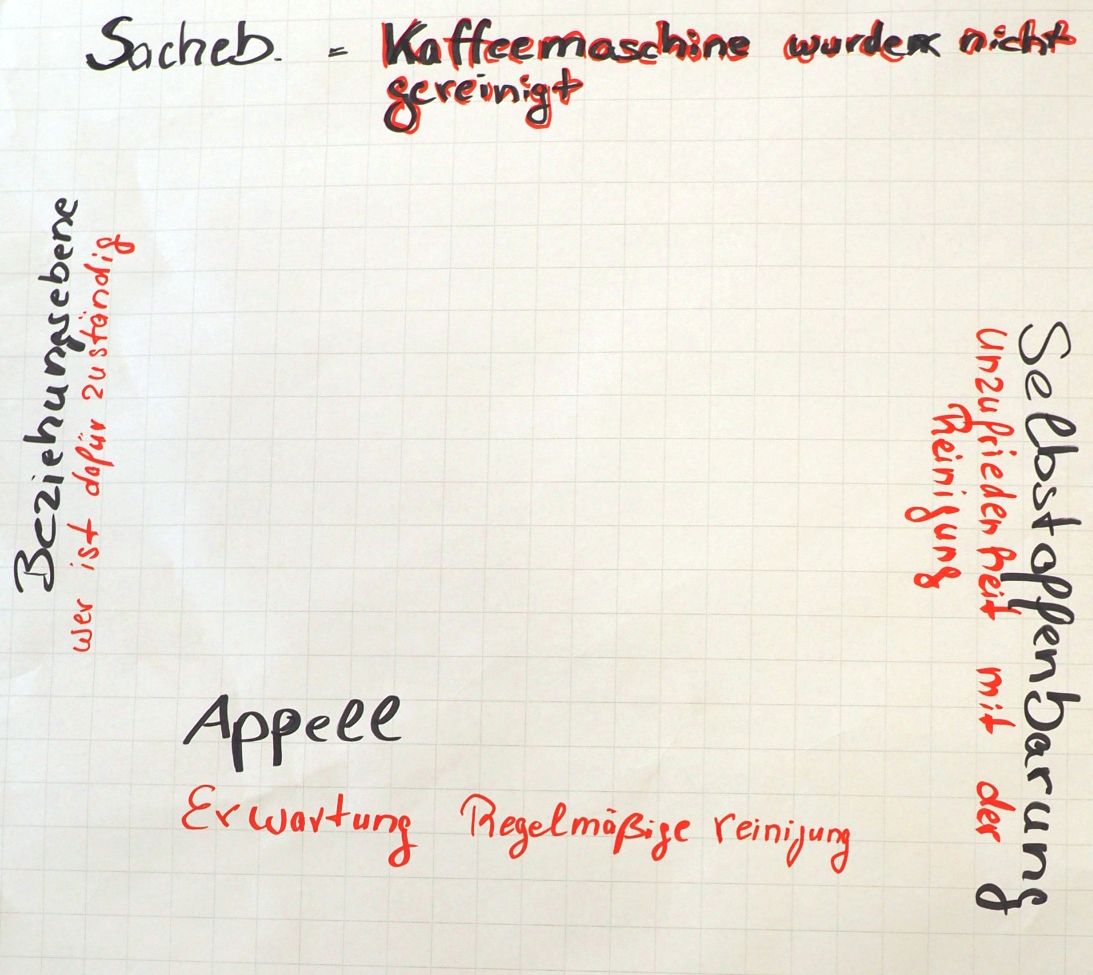 Sacheb. = Kaffeemaschine wurde nicht
gereinigt
Beziehungsebene
wer ist dafür zuständig
Selbstoffenbarung
Unzufriedenheit mit der
Reinigung
Appell
Erwartung Regelmäßige reinigung